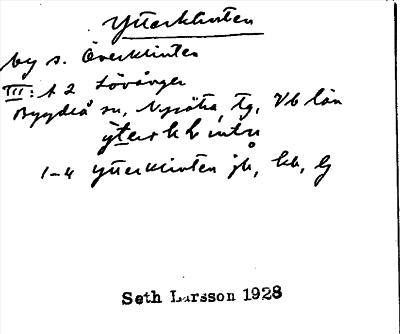 Ytterklinten
by s. Överklinten
III: A 2 Lövånger
Bygdeå sn, Nysätra tg, Vb län
1–4 Ytterklinten jb, kb, lj
Seth Larsson 1928